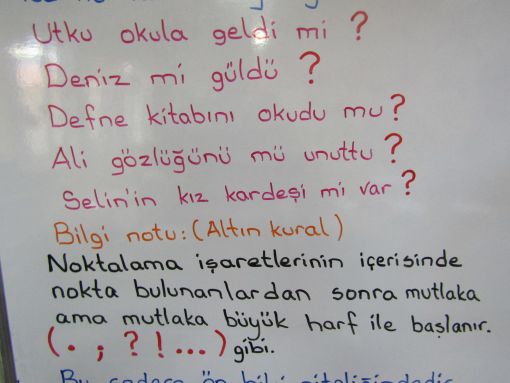 Utku okula geldi mi ?
Deniz mi güldü ?
Defne kitabını okudu mu ?
Ali gözlüğünü mü unuttu ?
Selin'in kız kardeşi mi var ?
Bilgi notu: (Altın kural)
Noktalama işaretlerinin içerisinde
nokta bulunanlardan sonra mutlaka
ama mutlaka büyük harf ile başlanır.
(. ; ? ! ...) gibi.
Bu sadece ön bilgi niteliğindedir